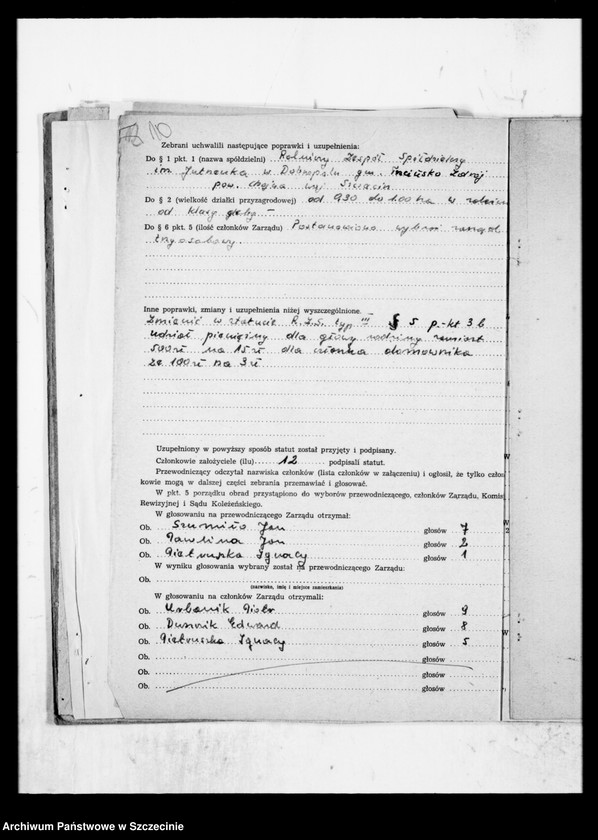 10
Zebrani uchwalili następujące poprawki i uzupełnienia:
Do § 1 pkt. 1 (nazwa spółdzielni) Rolniczy Zespół Spółdzielczy
im. Jutrzenka w Dobropolu gm. Trzcińsko Zdrój
pow. Chojna woj. Szczecin
Do § 2 (wielkość działki przyzagrodowej) od 0,30 do 1.00 ha w
od klasy gleby –
Do § 6 pkt. 5 (ilość członków Zarządu) Postanowiono wybrać zarząd
trzyosobowy.
Inne poprawki, zmiany i uzupełnienia niżej wyszczególnione.
Zmienić w statucie R.Z.S. typ III § 5 p.-kt 3 b
udział pieniężny dla głowy rodziny zamiast
500 zł na 15 zł dla członka domownika
ze 100 zł na 3 zł
Uzupełniony w powyższy sposób statut został przyjęty i podpisany.
Członkowie założyciele (ilu) 12 podpisali statut.
Przewodniczący odczytał nazwiska członków (lista członków w załączeniu) i ogłosił, że tylko człon
kowie mogą w dalszej części zebrania przemawiać i głosować.
W pkt. 5 porządku obrad przystąpiono do wyborów przewodniczącego, członków Zarządu, Komis
Rewizyjnej i Sądu Koleżeńskiego.
W głosowaniu na przewodniczącego Zarządu otrzymał:
Ob. Szumiło Jan głosów 7
Ob. Pawlina Jan głosów 2
Ob. Pietruszka Ignacy głosów 1
W wyniku głosowania wybrany został na przewodniczącego Zarządu:
Ob.
(nazwisko, imię i miejsce zamieszkania)
W głosowaniu na członków Zarządu otrzymali:
Ob. Urbanik Piotr głosów 9
Ob. Edward głosów 8
Ob. Pietruszka Ignacy głosów 5
Ob. głosów
Ob. głosów
Ob. głosów
Archiwum Państwowe w Szczecinie